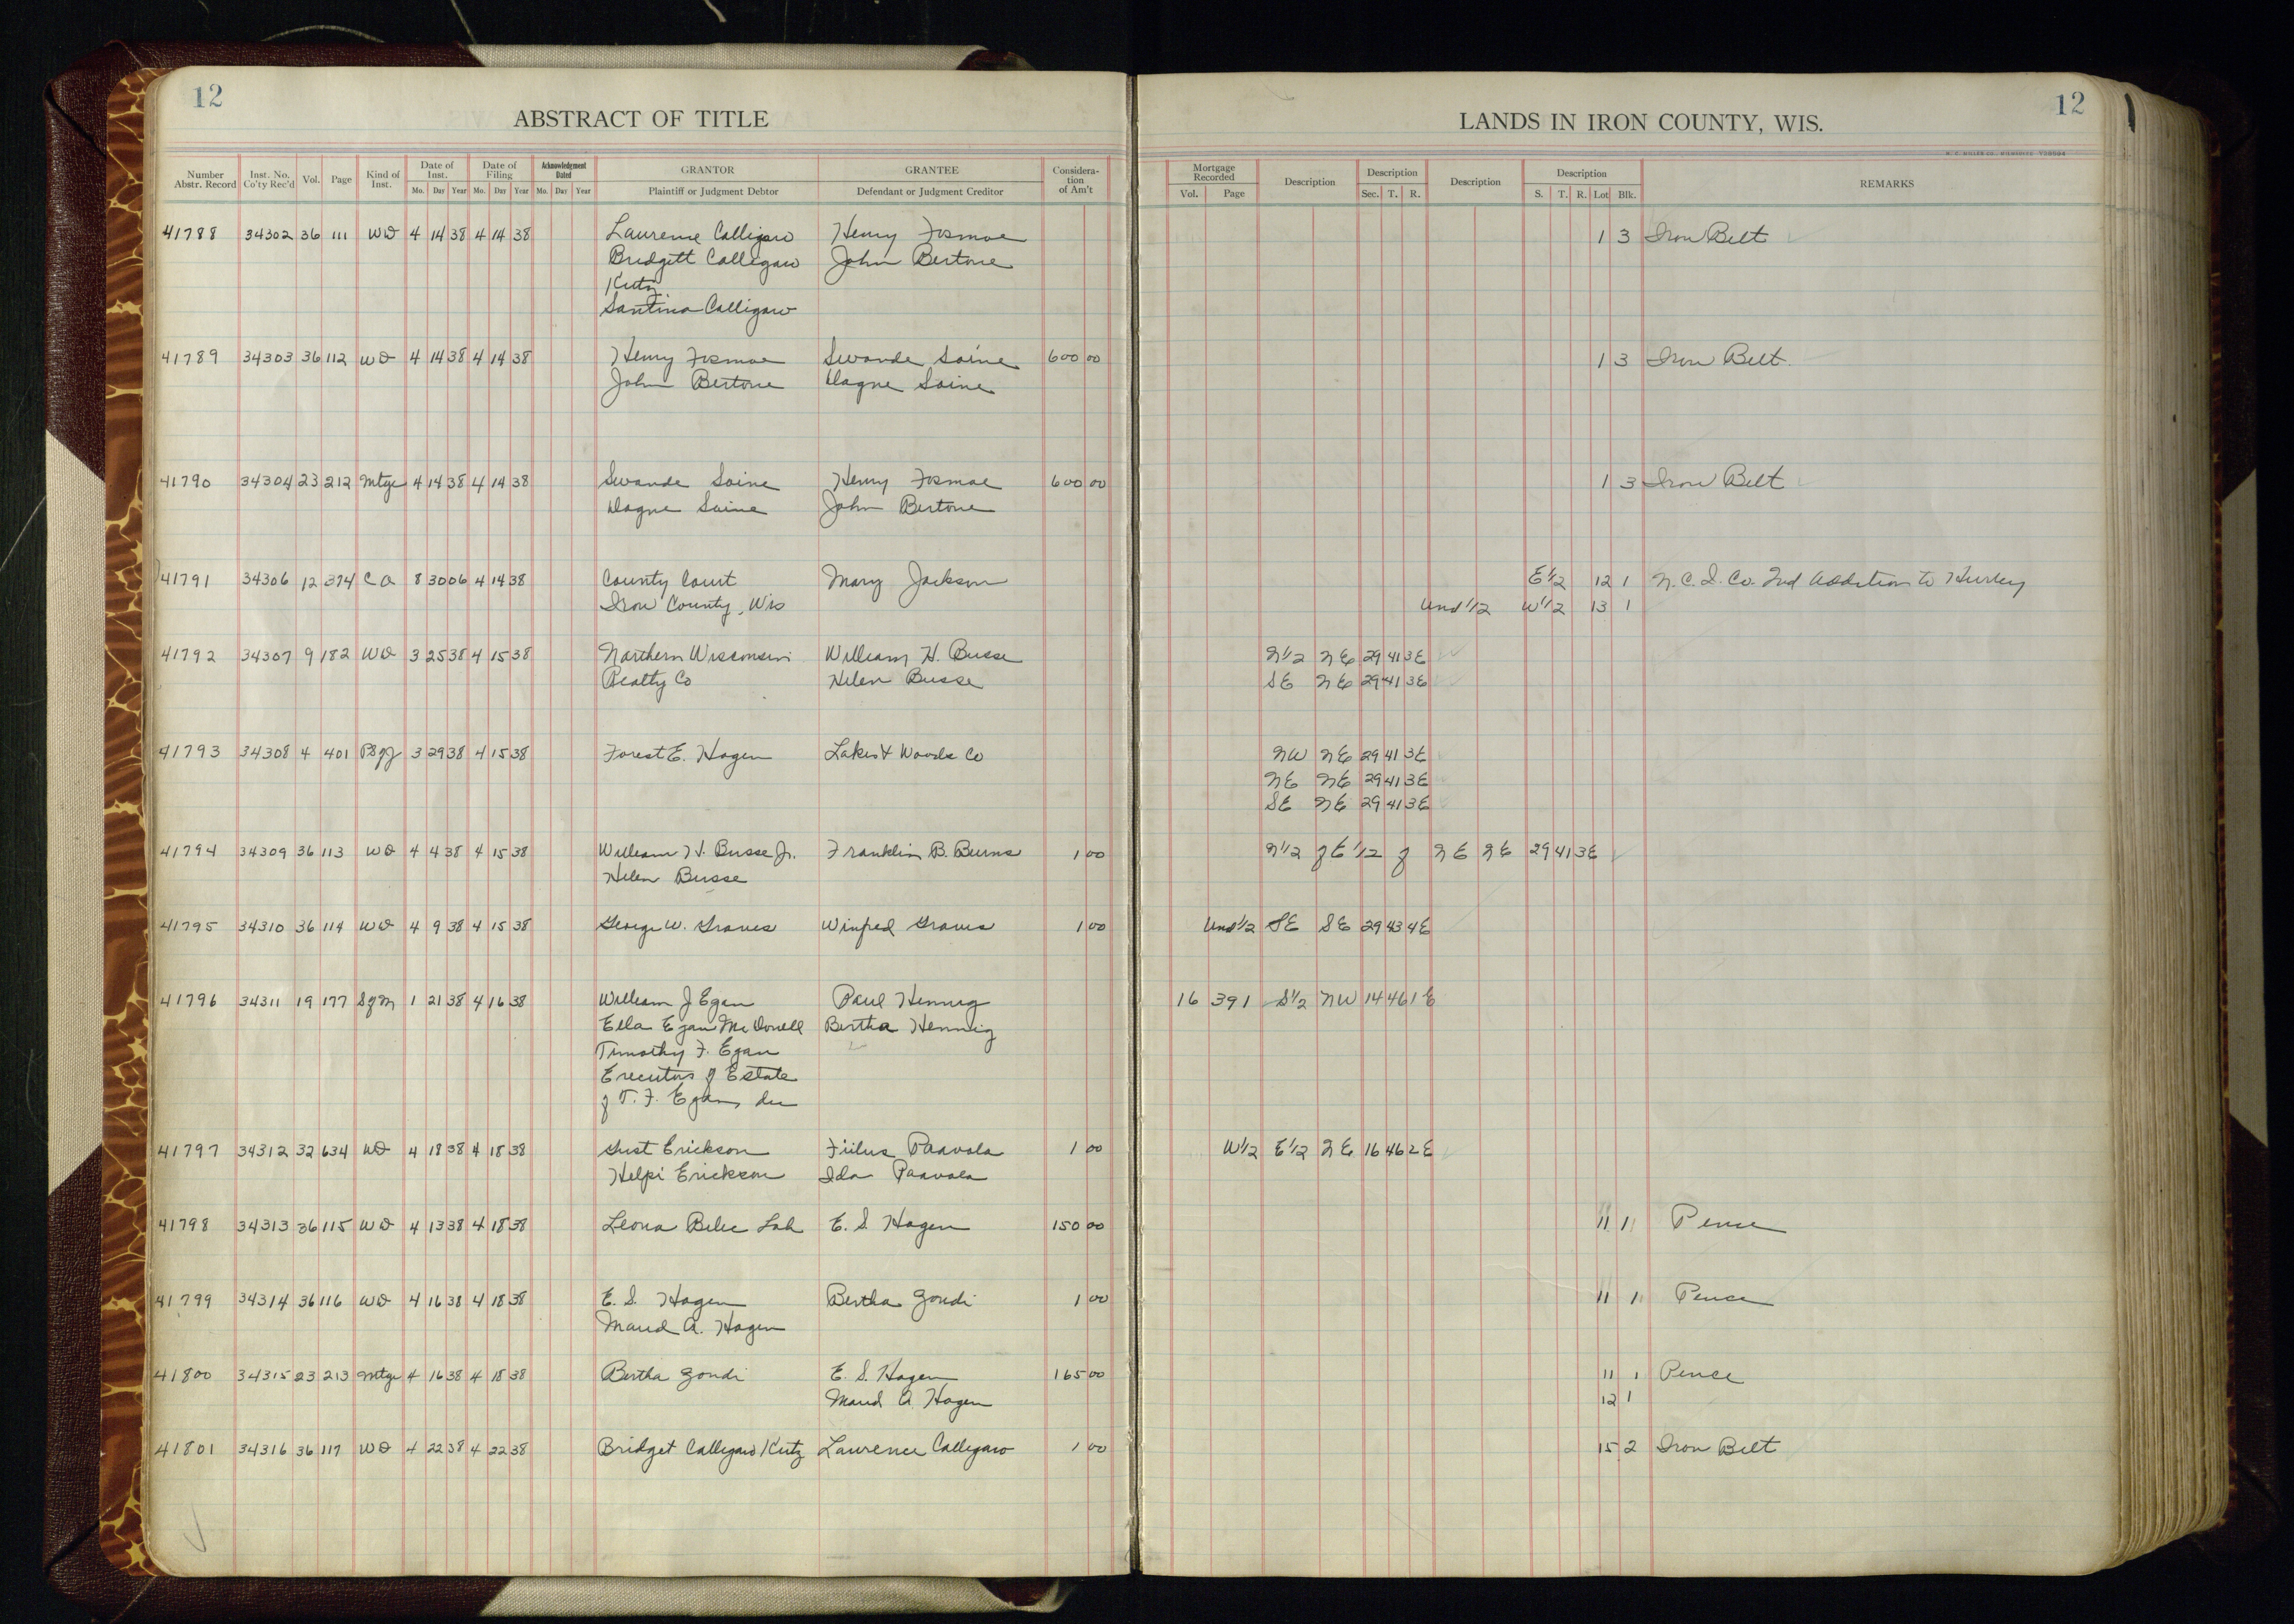 12
ABSTRACT OF TITLE
LANDS IN IRON COUNTY, WIS.
12
Number Abstr. Record Inst. No. Co'ty Rec'd Vol. Page Kind of Inst. Date of Inst. Mo. Day Year Date of Filing Mo. Day Year Acknowledgment Dated Mo. Day Year GRANTOR Plaintiff or Judgment Debtor GRANTEE Defendant or Judgment Creditor Considera-tion of Am't Mortgage Recorded Vol. Page Description Description Sec. T. R. Description Description S. T. R. Lot Blk. REMARKS
41788 34302 36 111 WD 4 14 38 4 14 38 Laurence Calligaro Henry Fosmoe 1 3 Iron Belt
Bridgett Calligaro John Bertone
Kutz
Santina Calligaro
41789 34303 36 112 WD 4 14 38 4 14 38 Henry Fosmoe Swande Saine 600 00 1 3 Iron Belt
John Bertone Dagne Saine
41790 34304 23 212 Mtge 4 14 38 4 14 38 Swande Saine Henry Fosmoe 600 00 1 3 Iron Belt
Dagne Saine John Bertone
41791 34306 12 374 C O 8 30 06 4 14 38 County Court Mary Jackson E 1/2 12 1 N.C.I. Co. 2nd Addition to Hurley
Iron County, Wis Und 1/2 W 1/2 13 1
41792 34307 9 182 WD 3 25 38 4 15 38 Northern Wisconsin William H. Busse N 1/2 NE 29 41 3E
Realty Co Helen Busse SE NE 29 41 3E
41793 34308 4 401 3 29 38 4 15 38 Forest E. Hagen Lakes & Woods Co NW NE 29 41 3E
NE NE 29 41 3E
SE NE 29 41 3E
41794 34309 36 113 WD 4 4 38 4 15 38 William H. Busse Jr. Franklin B. Burns 1 00 N 1/2 of E 1/2 of NE NE 29 41 3E
Helen Busse
41795 34310 36 114 WD 4 9 38 4 15 38 George W. Graves Winfred Graves 1 00 Und 1/2 SE SE 29 43 4E
41796 34311 19 177 S of M 1 21 38 4 16 38 William J Egan Paul Hennig 16 391 S 1/2 NW 14 46 1E
Ella Egan McDonell Bertha Hennig
Timothy F. Egan
Executors of Estate
of T. F. Egan, dec
41797 34312 32 634 WD 4 18 38 4 18 38 Gust Erickson Fiilus Paavola 1 00 W 1/2 E 1/2 NE 16 46 2E
Helpi Erickson Ida Paavola
41798 34313 36 115 WD 4 13 38 4 18 38 Leona Belic Lah E. S. Hagen 150 00 11 1 Pence
41799 34314 36 116 WD 4 16 38 4 18 38 E. S. Hagen Bertha Zondi 1 00 11 1 Pence
Maud A. Hagen
41800 34315 23 213 Mtge 4 16 38 4 18 38 Bertha Zondi E. S. Hagen 165 00 11 1 Pence
Maud A. Hagen 12 1
41801 34316 36 117 WD 4 22 38 4 22 38 Bridget Calligaro Kutz Laurence Calligaro 1 00 15 2 Iron Belt